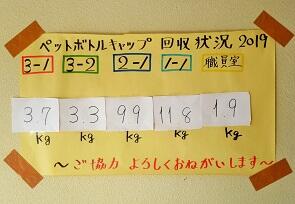 ペットボトルキャップ 回収状況 2019
3-1 3-2 2-1 1-1 職員室
3.7 3.3 9.9 11.8 1.9
kg kg kg kg kg
〜ご協力 よろしくおねがいします〜